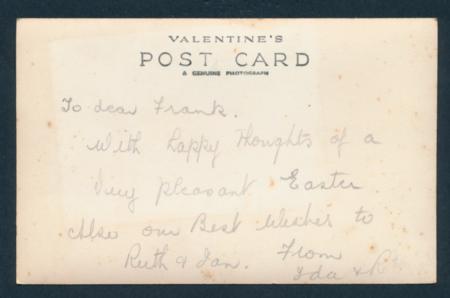 VALENTINE'S
POST CARD
A GENUINE PHOTOGRAPH
To dear Frank.
With happy thoughts of a
Very pleasant Easter.
Also our Best Wishes to
Ruth & Ian. From
Ida &